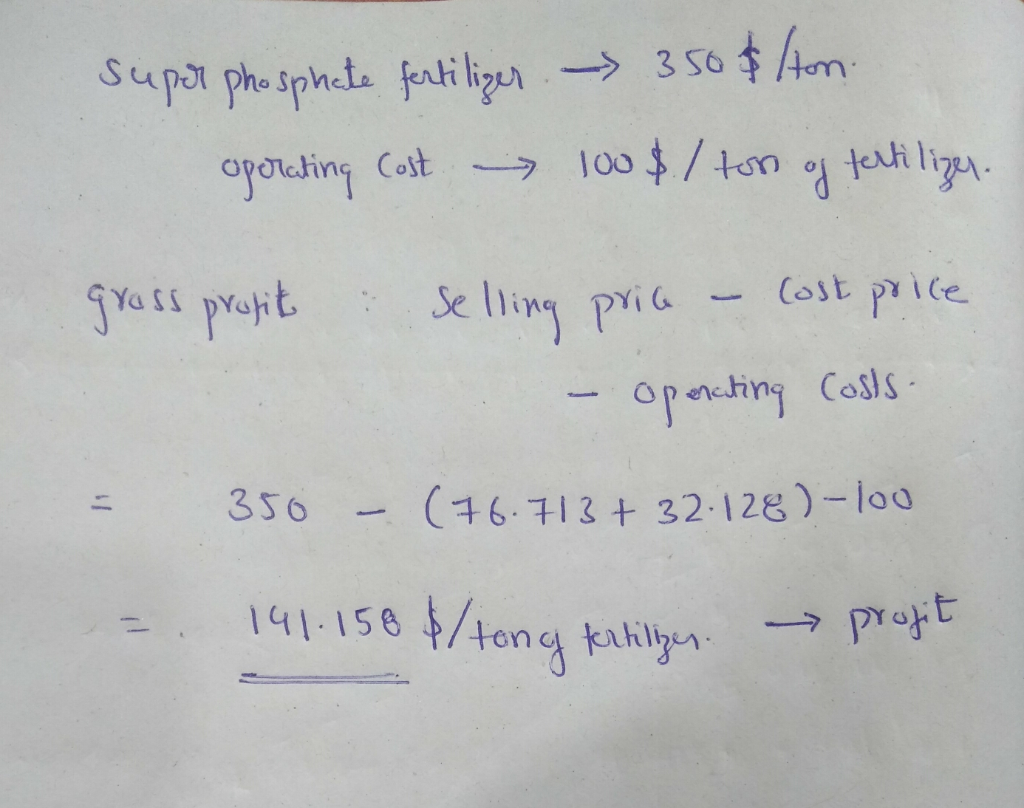 Super phosphate fertilizer → 350 $/ton.
operating Cost → 100 $ / ton of fertilizer.
gross profit : Selling price - Cost price
- operating Costs.
= 350 - (76.713 + 32.128) - 100
= 141.158 $/ton of fertilizer. → profit